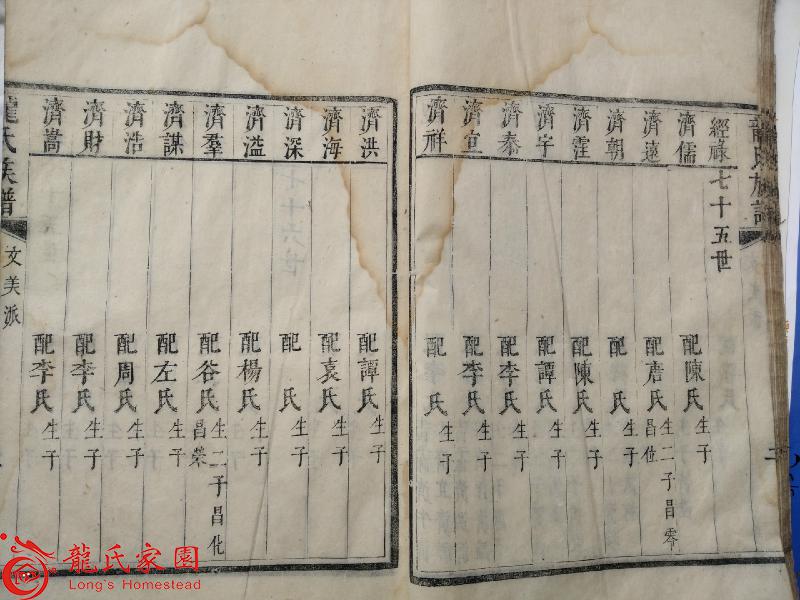 龍氏族譜
經祿 七十五世
濟儒 配陳氏 生子
濟遠 配唐氏 生二子昌零 昌位
濟朝 配 氏 生子
濟霔 配陳氏 生子
濟宇 配譚氏 生子
濟泰 配李氏 生子
濟宣 配李氏 生子
濟祥 配 氏 生子
濟洪 配譚氏 生子
濟海 配袁氏 生子
濟深 配 氏 生子
濟溢 配楊氏 生子
濟羣 配谷氏 生二子昌化 昌榮
濟謀 配左氏 生子
濟浩 配周氏 生子
濟財 配李氏 生子
濟嵩 配李氏 生子
龍氏族譜 文美派
龍氏家園
Long's Homestead